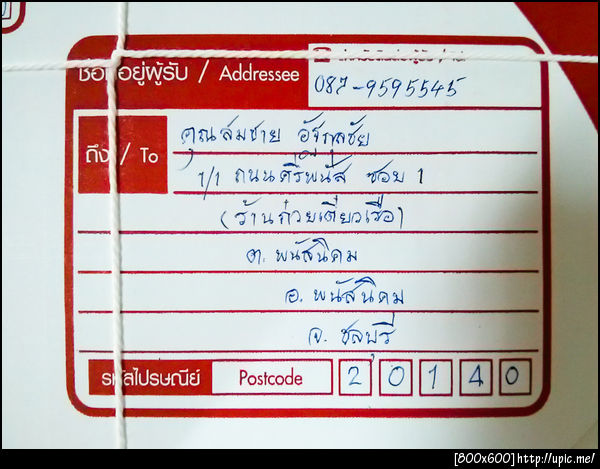 ชื่อที่อยู่ผู้รับ / Addressee
087-9595545
ถึง / To
คุณสมชาย อัฐกุลชัย
1/1 ถนนศรีพนัส ซอย 1
(ร้านก๋วยเตี๋ยวเรือ)
ต. พนัสนิคม
อ. พนัสนิคม
จ. ชลบุรี
รหัสไปรษณีย์ Postcode 20140
[800x600]http://upic.me/